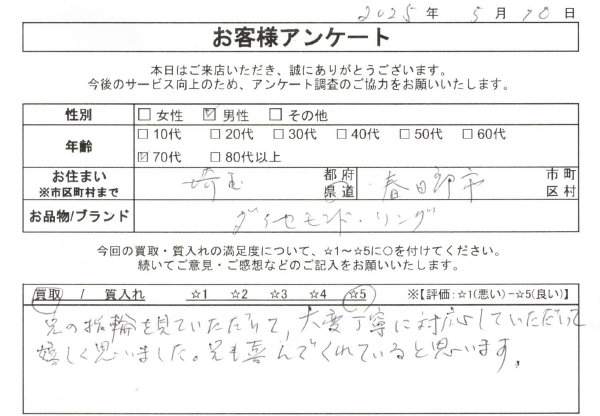 2025年 5月 10日
お客様アンケート
本日はご来店いただき、誠にありがとうございます。
今後のサービス向上のため、アンケート調査のご協力をお願いいたします。
性別 □ 女性 ☑ 男性 □ その他
年齢 □ 10代 □ 20代 □ 30代 □ 40代 □ 50代 □ 60代
☑ 70代 □ 80代以上
お住まい ※市区町村まで 埼玉 都府県道 春日部市 市町区村
お品物/ブランド ダイヤモンド・リング
今回の買取・質入れの満足度について、☆1～☆5に○を付けてください。
続いてご意見・ご感想などのご記入をお願いいたします。
買取 / 質入れ ☆1 ☆2 ☆3 ☆4 ☆5 ※【評価:☆1(悪い)−☆5(良い)】
兄の指輪を見ていただいて、大変丁寧に対応していただいて
嬉しく思いました。兄も喜んでくれていると思います。